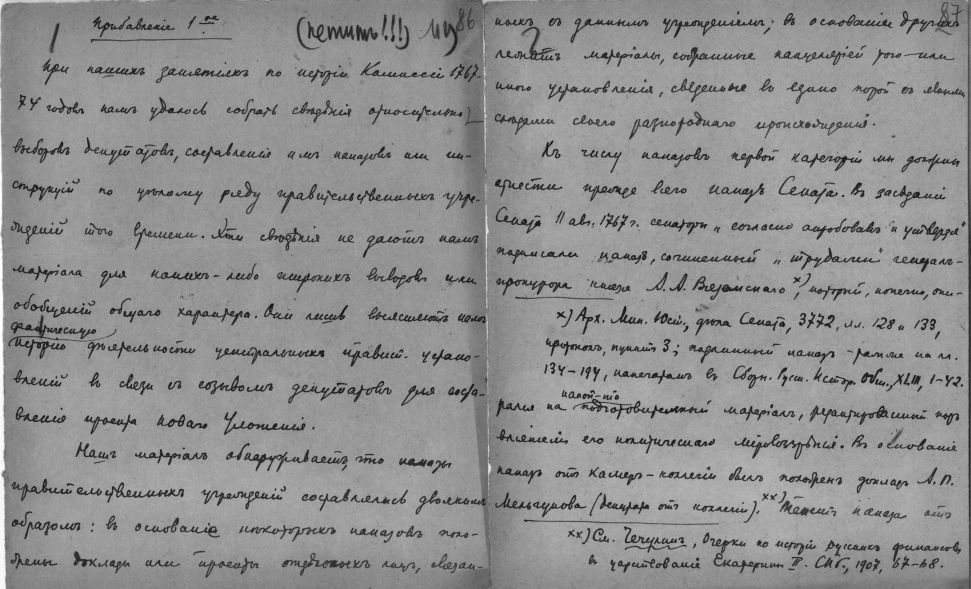 Прибавленіе 1ое
(петитъ!!!)
86
При нашихъ занятіяхъ по исторіи Комиссіи 1767-
74 годовъ намъ удалось собрать свѣдѣнія относительно
выборовъ депутатовъ, составленія имъ наказовъ или ин-
струкцій по цѣлому ряду правительственныхъ учре-
жденій того времени. Эти свѣдѣнія не даютъ намъ
матеріала для какихъ-либо широкихъ выводовъ или
обобщеній общаго характера. Они лишь выясняютъ намъ
фактическую
исторію дѣятельности центральныхъ правит. устано-
вленій въ связи съ созывомъ депутатовъ для соста-
вленія проекта новаго Уложенія.
Нашъ матеріалъ обнаруживаетъ, что наказы
правительственныхъ учрежденій составлялись двоякимъ
образомъ: въ основаніе нѣкоторыхъ наказовъ поло-
жены доклады или проекты отдѣльныхъ лицъ, связан-
87
ныхъ съ даннымъ учрежденіемъ; въ основаніи другихъ
лежатъ матеріалы, собранные канцеляріей того-или
иного установленія, сведенные въ едино порой съ явными
слѣдами своего разнороднаго происхожденія.
Къ числу наказовъ первой категоріи мы должны
отнести прежде всего наказъ Сената. Въ засѣданіи
Сената 11 авг. 1767 г. сенаторы „согласно апробовавъ и утвердя"
подписали наказъ, сочиненный „трудами" генералъ-
прокурора князя А. А. Вяземскаго x), который, конечно, опи-
x) Арх. Мин. Юст., дѣла Сената, 3772, лл. 128 и 133,
протоколъ, пунктъ 3; подлинный наказъ - также на лл.
134-194, напечатанъ въ Сборн. Русс. Истор. Общ., XLIII, 1-42.
какой-то
рался на подготовительный матеріалъ, редактированный подъ
вліяніемъ его политическаго міровоззрѣнія. Въ основаніе
наказа отъ Камеръ-коллегіи былъ положенъ докладъ А. П.
Мельгунова (депутата отъ коллегіи). xx) Текстъ наказа отъ
xx) См. Чечулинъ, Очерки по исторіи русскихъ финансовъ
въ царствованіе Екатерины II. Спб., 1907, 67-68.